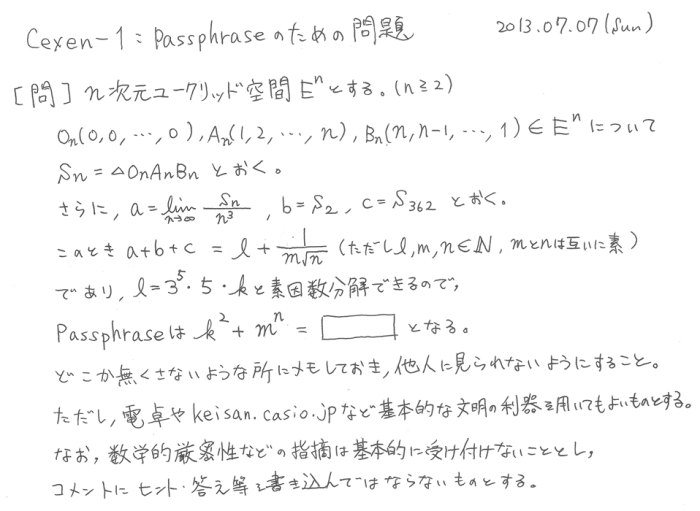 Cexen-1：Passphraseのための問題 2013.07.07(Sun)
[問] n次元ユークリッド空間 Eⁿとする。(n≧2)
Oₙ(0,0,…,0), Aₙ(1,2,…,n), Bₙ(n,n-1,…,1)∈Eⁿについて
Sₙ=△OₙAₙBₙ とおく。
さらに, a=lim_{n→∞} Sₙ/n³, b=S₂, c=S₃₆₂ とおく。
このとき a+b+c = l + 1/(m√n) (ただしl,m,n∈ℕ, mとnは互いに素)
であり, l=3⁵・5・kと素因数分解できるので,
Passphraseは k²+mⁿ = □ となる。
どこか無くさないような所にメモしておき, 他人に見られないようにすること。
ただし, 電卓やkeisan.casio.jpなど基本的な文明の利器を用いてもよいものとする。
なお, 数学的厳密性などの指摘は基本的に受け付けないこととし,
コメントにヒント・答え等を書き込んではならないものとする。